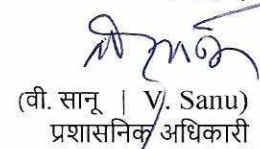 (वी. सानू | V. Sanu)
प्रशासनिक अधिकारी